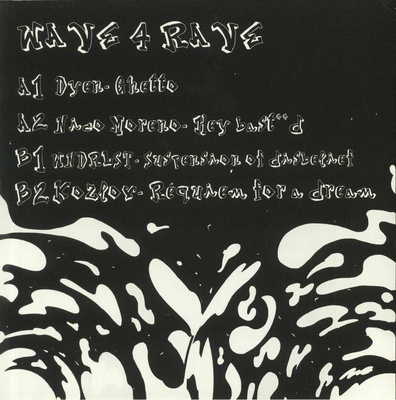 WAVE 4 RAVE
A1 Dyen - Ghetto
A2 Nico Moreno - Hey Bast**d
B1 KNDRLST - Suspension of disbelief
B2 Kozlov - Requiem for a dream